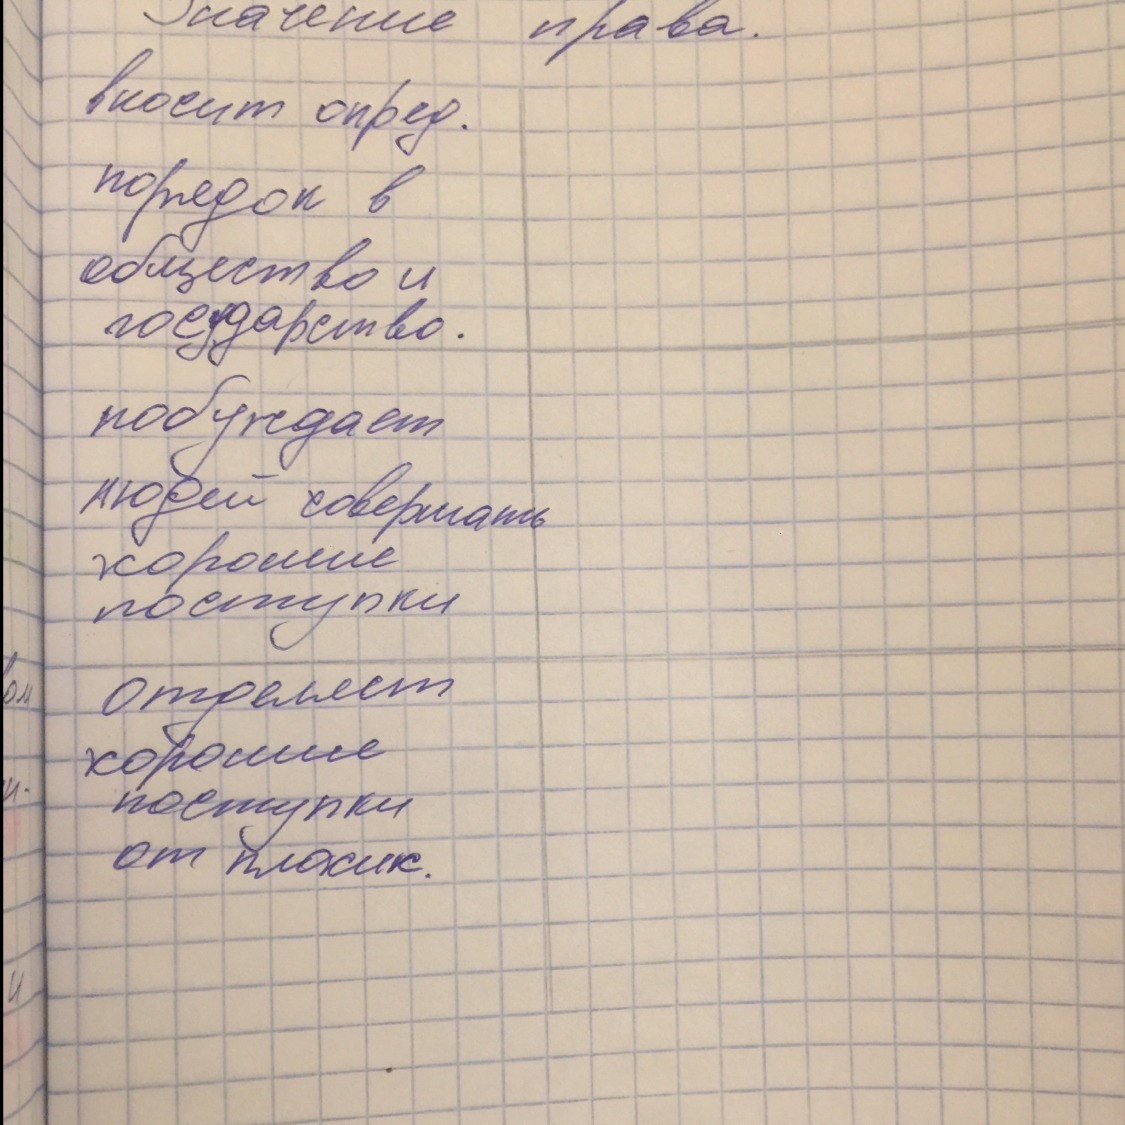 Значение права.
вносит опред.
порядок в
общество и
государство.
побуждает
людей совершать
хорошие
поступки
отделяет
хорошие
поступки
от плохих.